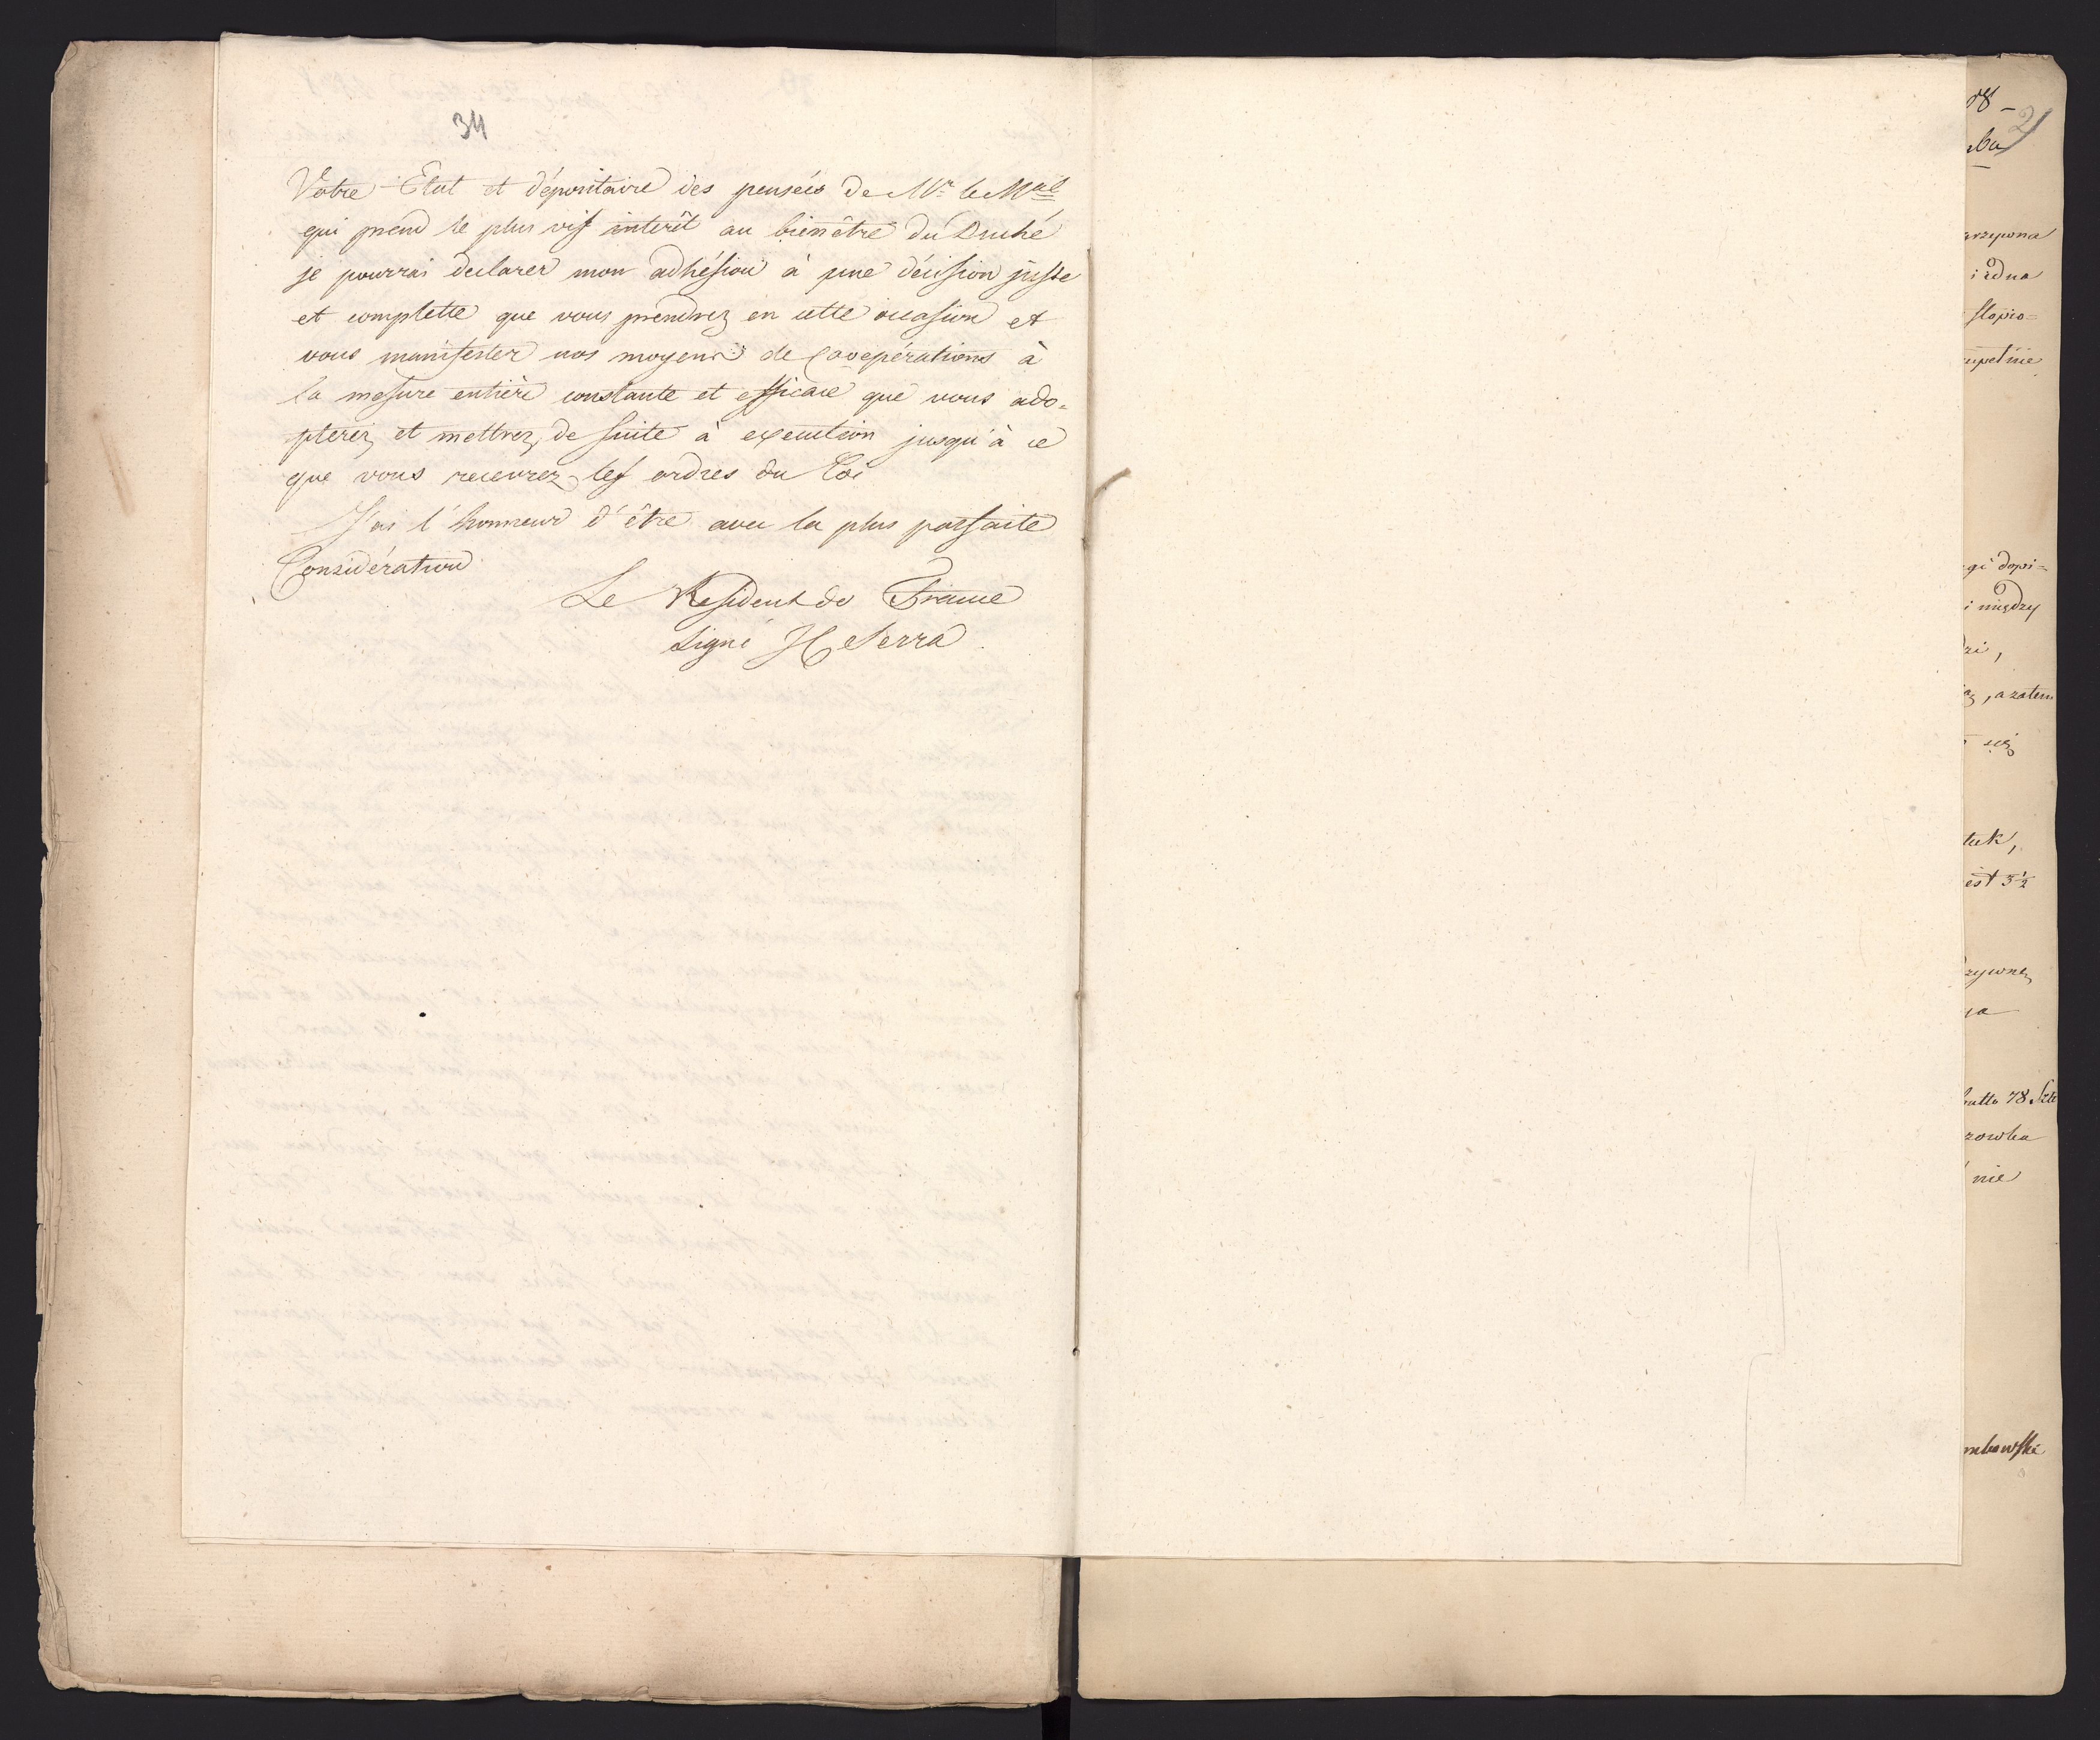 34
Votre Etat et dépositaire des pensées de Mr. le Mal
qui prend le plus vif interêt au bienêtre du Duché
je pourrai declarer mon adhésion à une décision juste
et complette que vous prendrez en cette occasion et
vous manifester nos moyens de Cooepérations à
la mesure entière constante et efficace que vous ado-
pterez et mettrez de suite à execution jusqu'à ce
que vous recevrez les ordres du Roi
J'ai l'honneur d'être avec la plus parfaite
Considération
Le Resident de France
signé Serra
21
arzywna
i iedna
stopio=
zupełnie
gi dopi=
i między
, a zatem
się
tuk,
est 5½
zywną
78 Szt
zowka
nie
mbowski